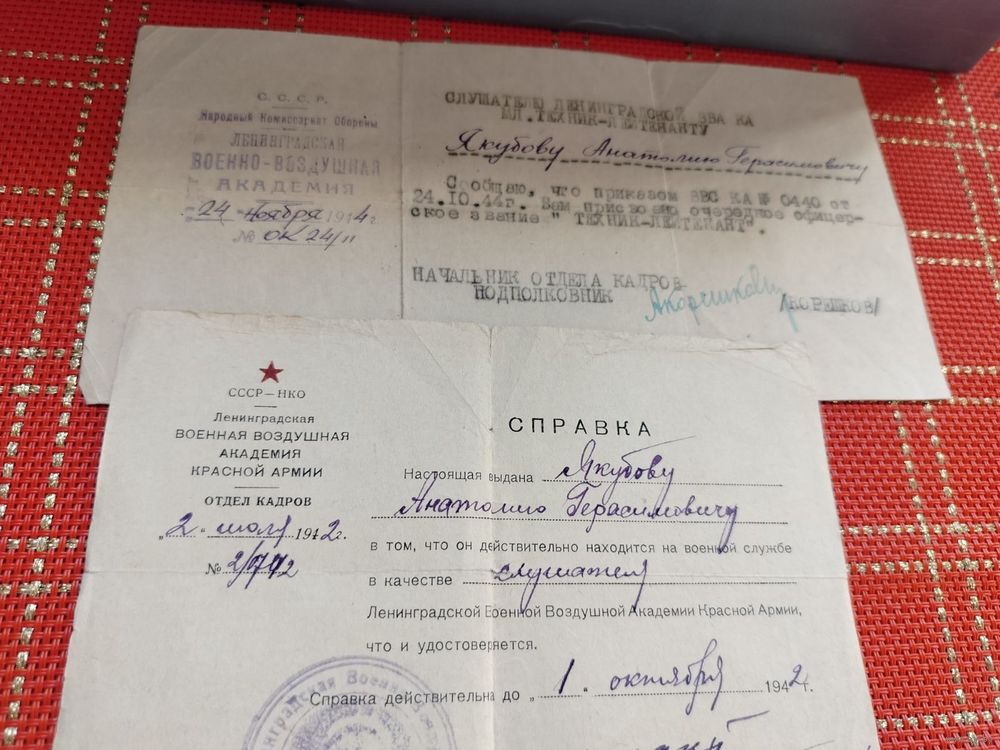 С. С. С. Р.
Народный Комиссариат Обороны
ЛЕНИНГРАДСКАЯ
ВОЕННО-ВОЗДУШНАЯ
АКАДЕМИЯ
24 ноября 1944г.
№ ОК 24/п
СЛУШАТЕЛЮ ЛЕНИНГРАДСКОЙ ВВА КА
МЛ.ТЕХНИК-ЛЕЙТЕНАНТУ
Якубову Анатолию Герасимовичу
Сообщаю, что приказом ВВС КА № 0440 от
24.10.44г. Вам присвоено очередное офицер-
ское звание " ТЕХНИК-ЛЕЙТЕНАНТ".
НАЧАЛЬНИК ОТДЕЛА КАДРОВ
ПОДПОЛКОВНИК
/КОРЕШКОВ/
СССР—НКО
Ленинградская
ВОЕННАЯ ВОЗДУШНАЯ
АКАДЕМИЯ
КРАСНОЙ АРМИИ
ОТДЕЛ КАДРОВ
„2" июля 1942г.
№
СПРАВКА
Настоящая выдана Якубову
Анатолию Герасимовичу
в том, что он действительно находится на военной службе
в качестве слушателя
Ленинградской Военной Воздушной Академии Красной Армии,
что и удостоверяется.
Справка действительна до „1" октября 1942г.